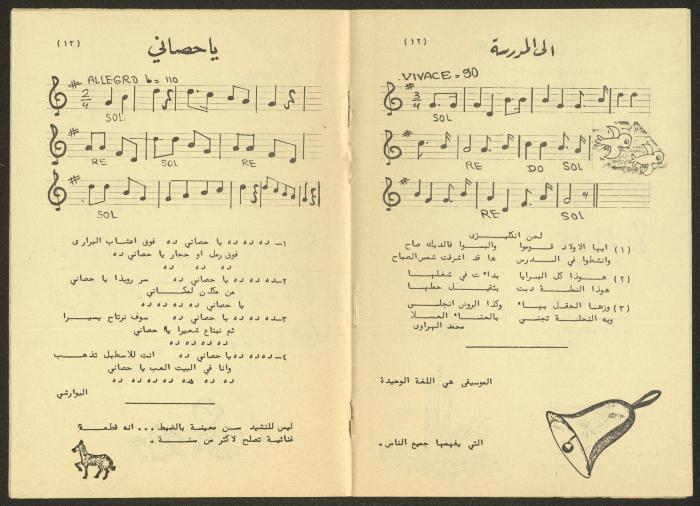 (١٢)
الى المدرسة
VIVACE = 90
3/4
SOL
RE DO SOL
RE SOL
لحن انكليزى
(١) ايها الاولاد قوموا والبسوا فالديك صاح
وانشطوا في الدرس ها قد اشرقت شمس الصباح
(٢) هوذا كل البرايا بدات في شغلها
هوذا النملة دبت بثقيل حملها
(٣) وزها الحقل بهاء وكذا الروض انجلى
وبه النحلة تجني بالعناء العسلا
محمد الهراوى
الموسيقى هي اللغة الوحيدة
التي يفهمها جميع الناس.
(١٣)
يا حصاني
ALLEGRO = 110
2/4
SOL
RE SOL RE
SOL
١- ده ده ده يا حصاني ده فوق اعشاب البرارى
فوق رمل او حجار يا حصاني ده
ده ده ده
٢- ده ده ده يا حصاني ده سر رويدا يا حصاني
من مكان لمكاني
يا حصاني ده ده ده ده
٣- ده ده ده يا حصاني ده سوف نرتاح يسيرا
ثم نبتاع شعيرا يا حصاني
ده ده ده ده ده
٤- ده ده ده يا حصاني ده انت للاسطبل تذهب
وانا في البيت العب يا حصاني
ده ده ده ده ده ده
البوارشي
ليس للنشيد سن معينة بالضبط ... انه قطعة
غنائية تصلح لاكثر من سنة .